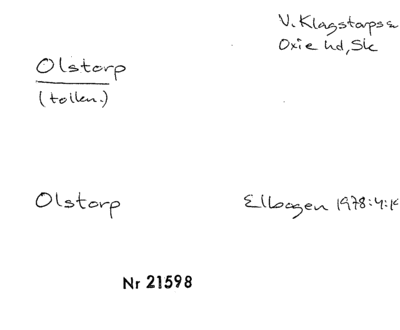 V. Klagstorps
Oxie hd, Sk
Olstorp
Olstorp
Elbogen 1978:4:1
Nr 21598